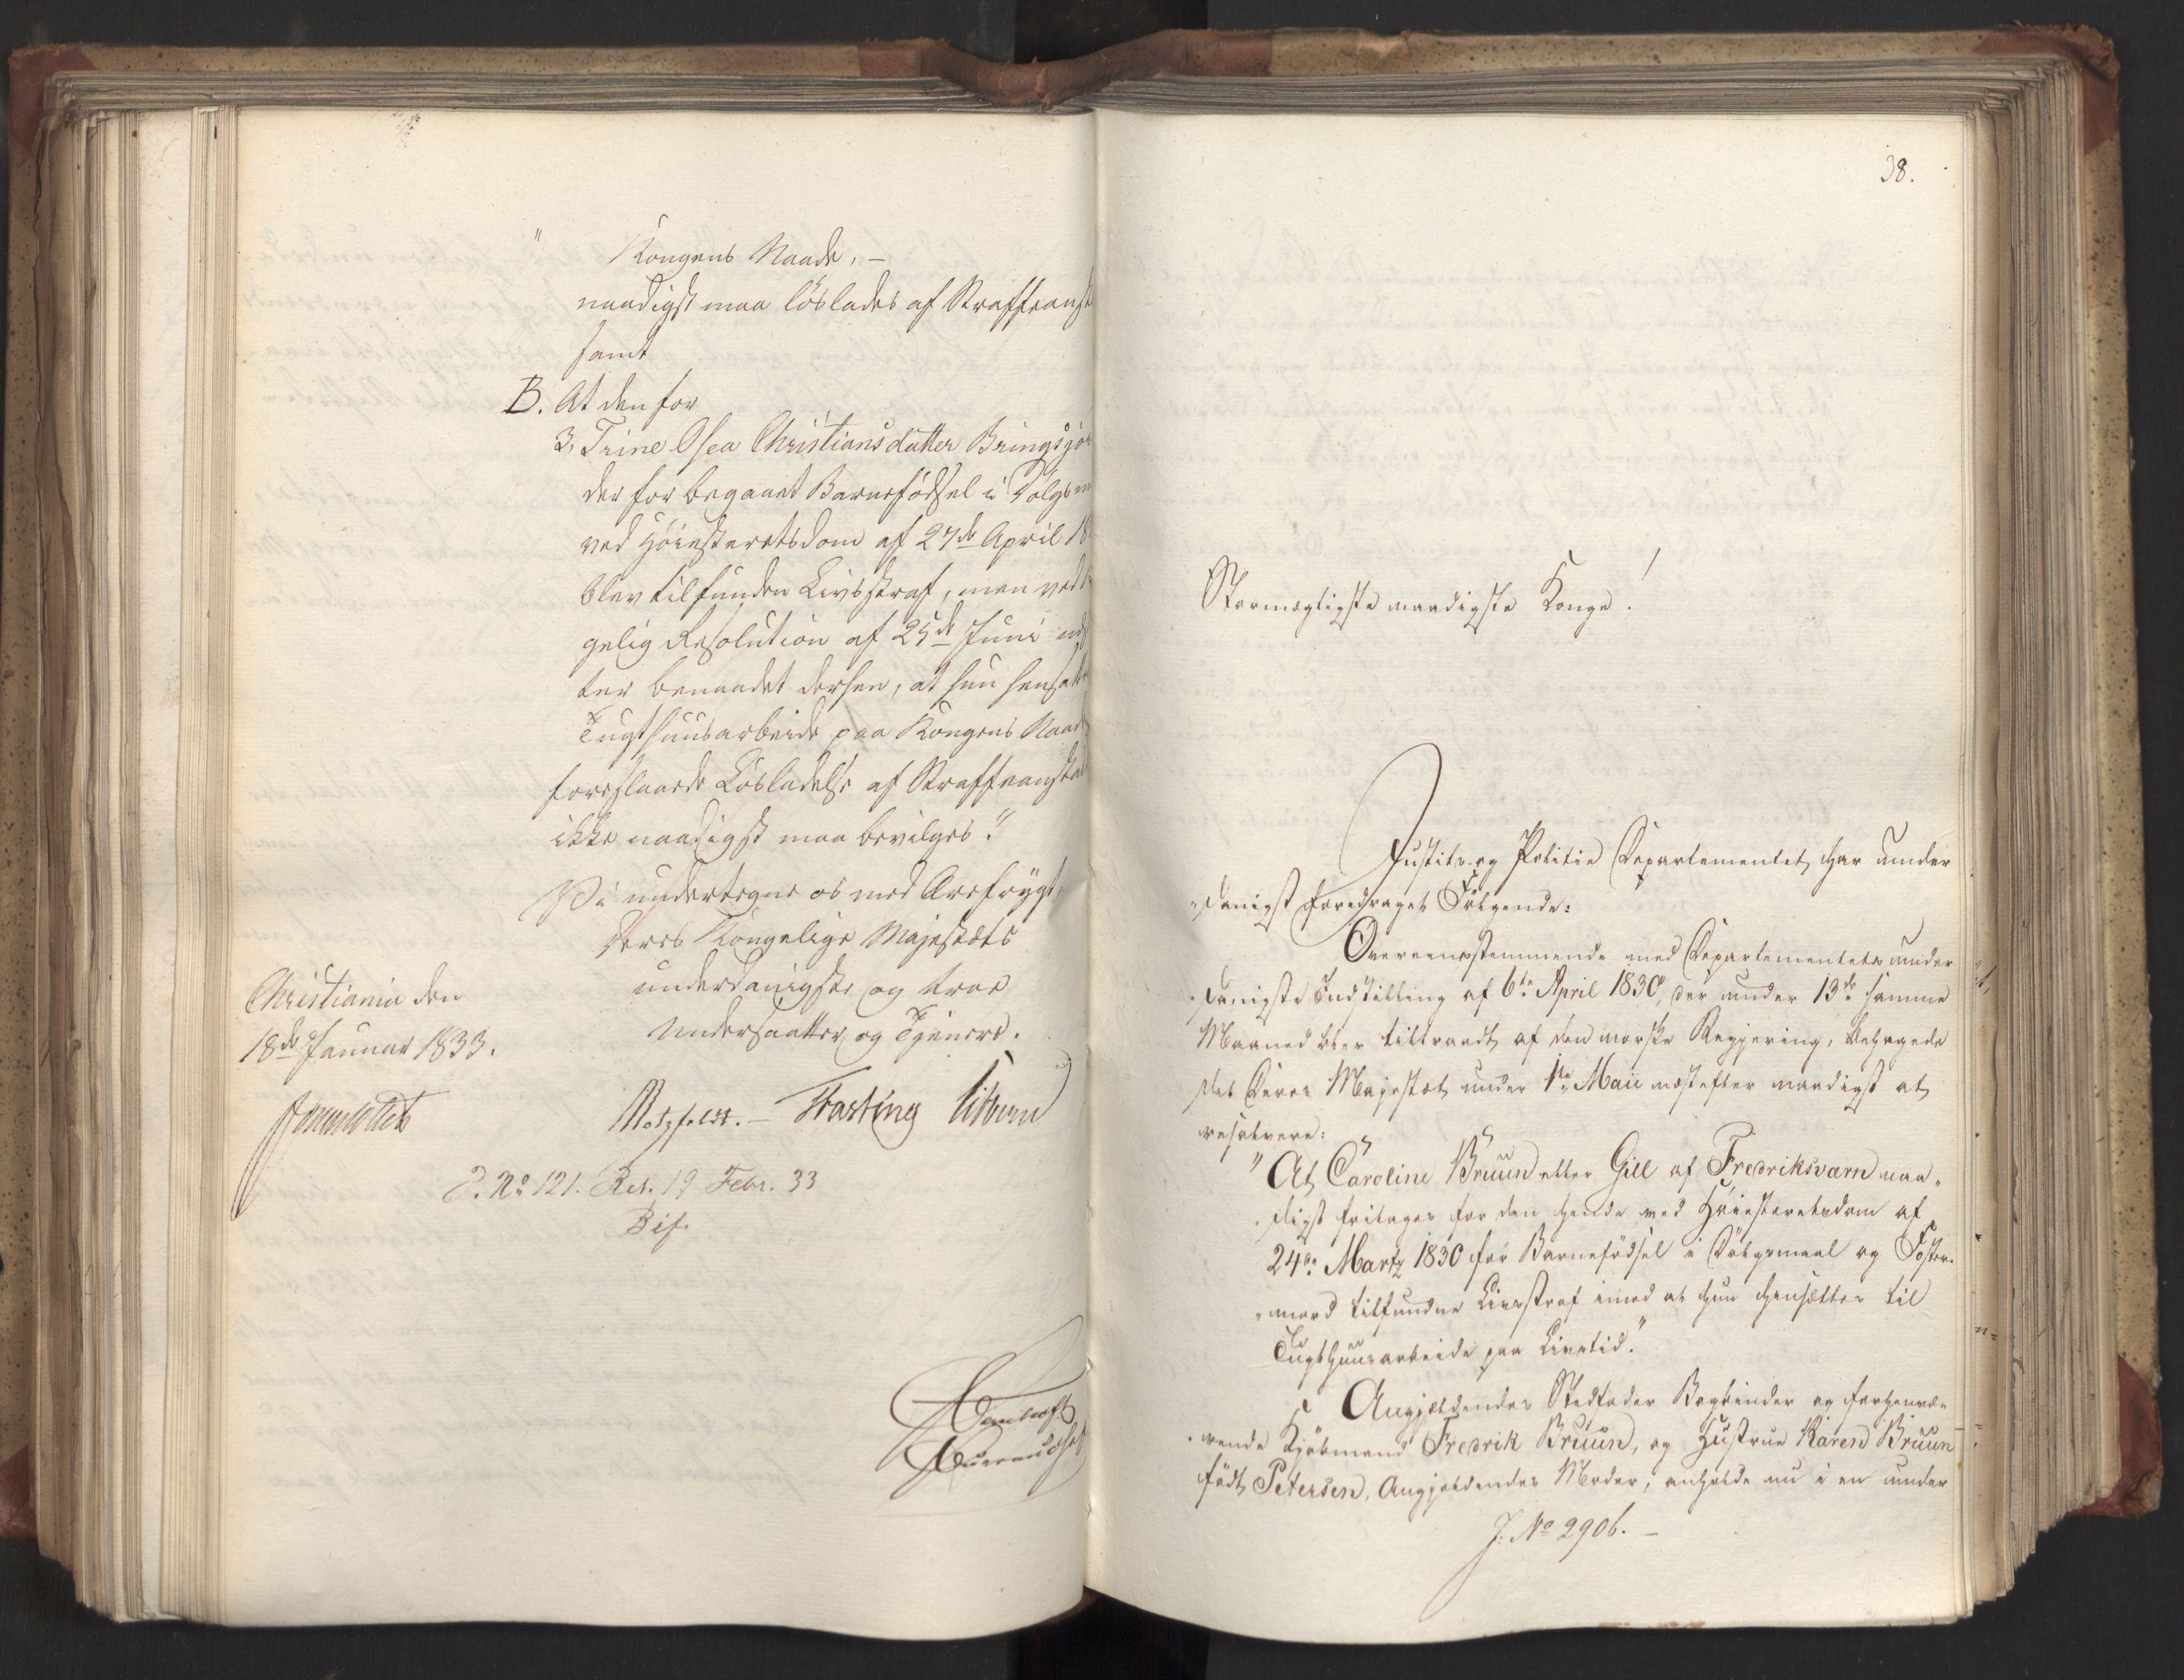 " Kongens Naade, –
naadigst maa löslades af Straffeanst
samt
B. At den for
3, Trine Osea Christiansdatter Bringsjor
der for begaaet Barnefödsel i Dölgsm
ved Höiesteretsdom af 27de April 18
blev tilfunden Livsstraf, men ved
gelig Resolution af 25de Juni
ter benaadet derhen, at hun hensatte
Tugthuusarbeide paa Kongens Naad
foreslaaede Lösladelse af Straffeanstal
ikke naadigst maa bevilges."
Vi undertegne os med Ærefrygt,
Deres Kongelige Majestæts
underdanigste og troe
Undersaatter og Tjenere.
Christiania den
18de Januar 1833.
Motzfeldt. – Fasting
P. No 121. Res. 19 Febr. 33
Bif.
38.
Stormægtigste naadigste Konge!
Justits- og Politie Departementet har under
danigst foredraget Fölgende:
Overeensstemmende med Departementets under
danigste Indstilling af 6te April 1830, der under 13de samme
Maaned blev tiltraadt af den norske Regjering, behagede
det Deres Majestæt under 1ste Maii næstefter naadigst at
resolvere:
"At Caroline Bruun eller Gill af Fredriksværn naa-
digst fritages for den hende ved Höiesteretsdom af
24de Martz 1830 for Barnefödsel i Dölgsmaal og Foster-
mord tilfundne Livsstraf imod at hun hensættes til
Tugthuusarbeide paa Livstid."
Angjeldendes Stedfader Bogbinder og forhenvæ-
rende Kjöbmand Fredrik Bruun, og Hustrue Karen Bruun
födt Petersen, Angjeldendes Moder, anholde nu i en under
J. No 2906. –